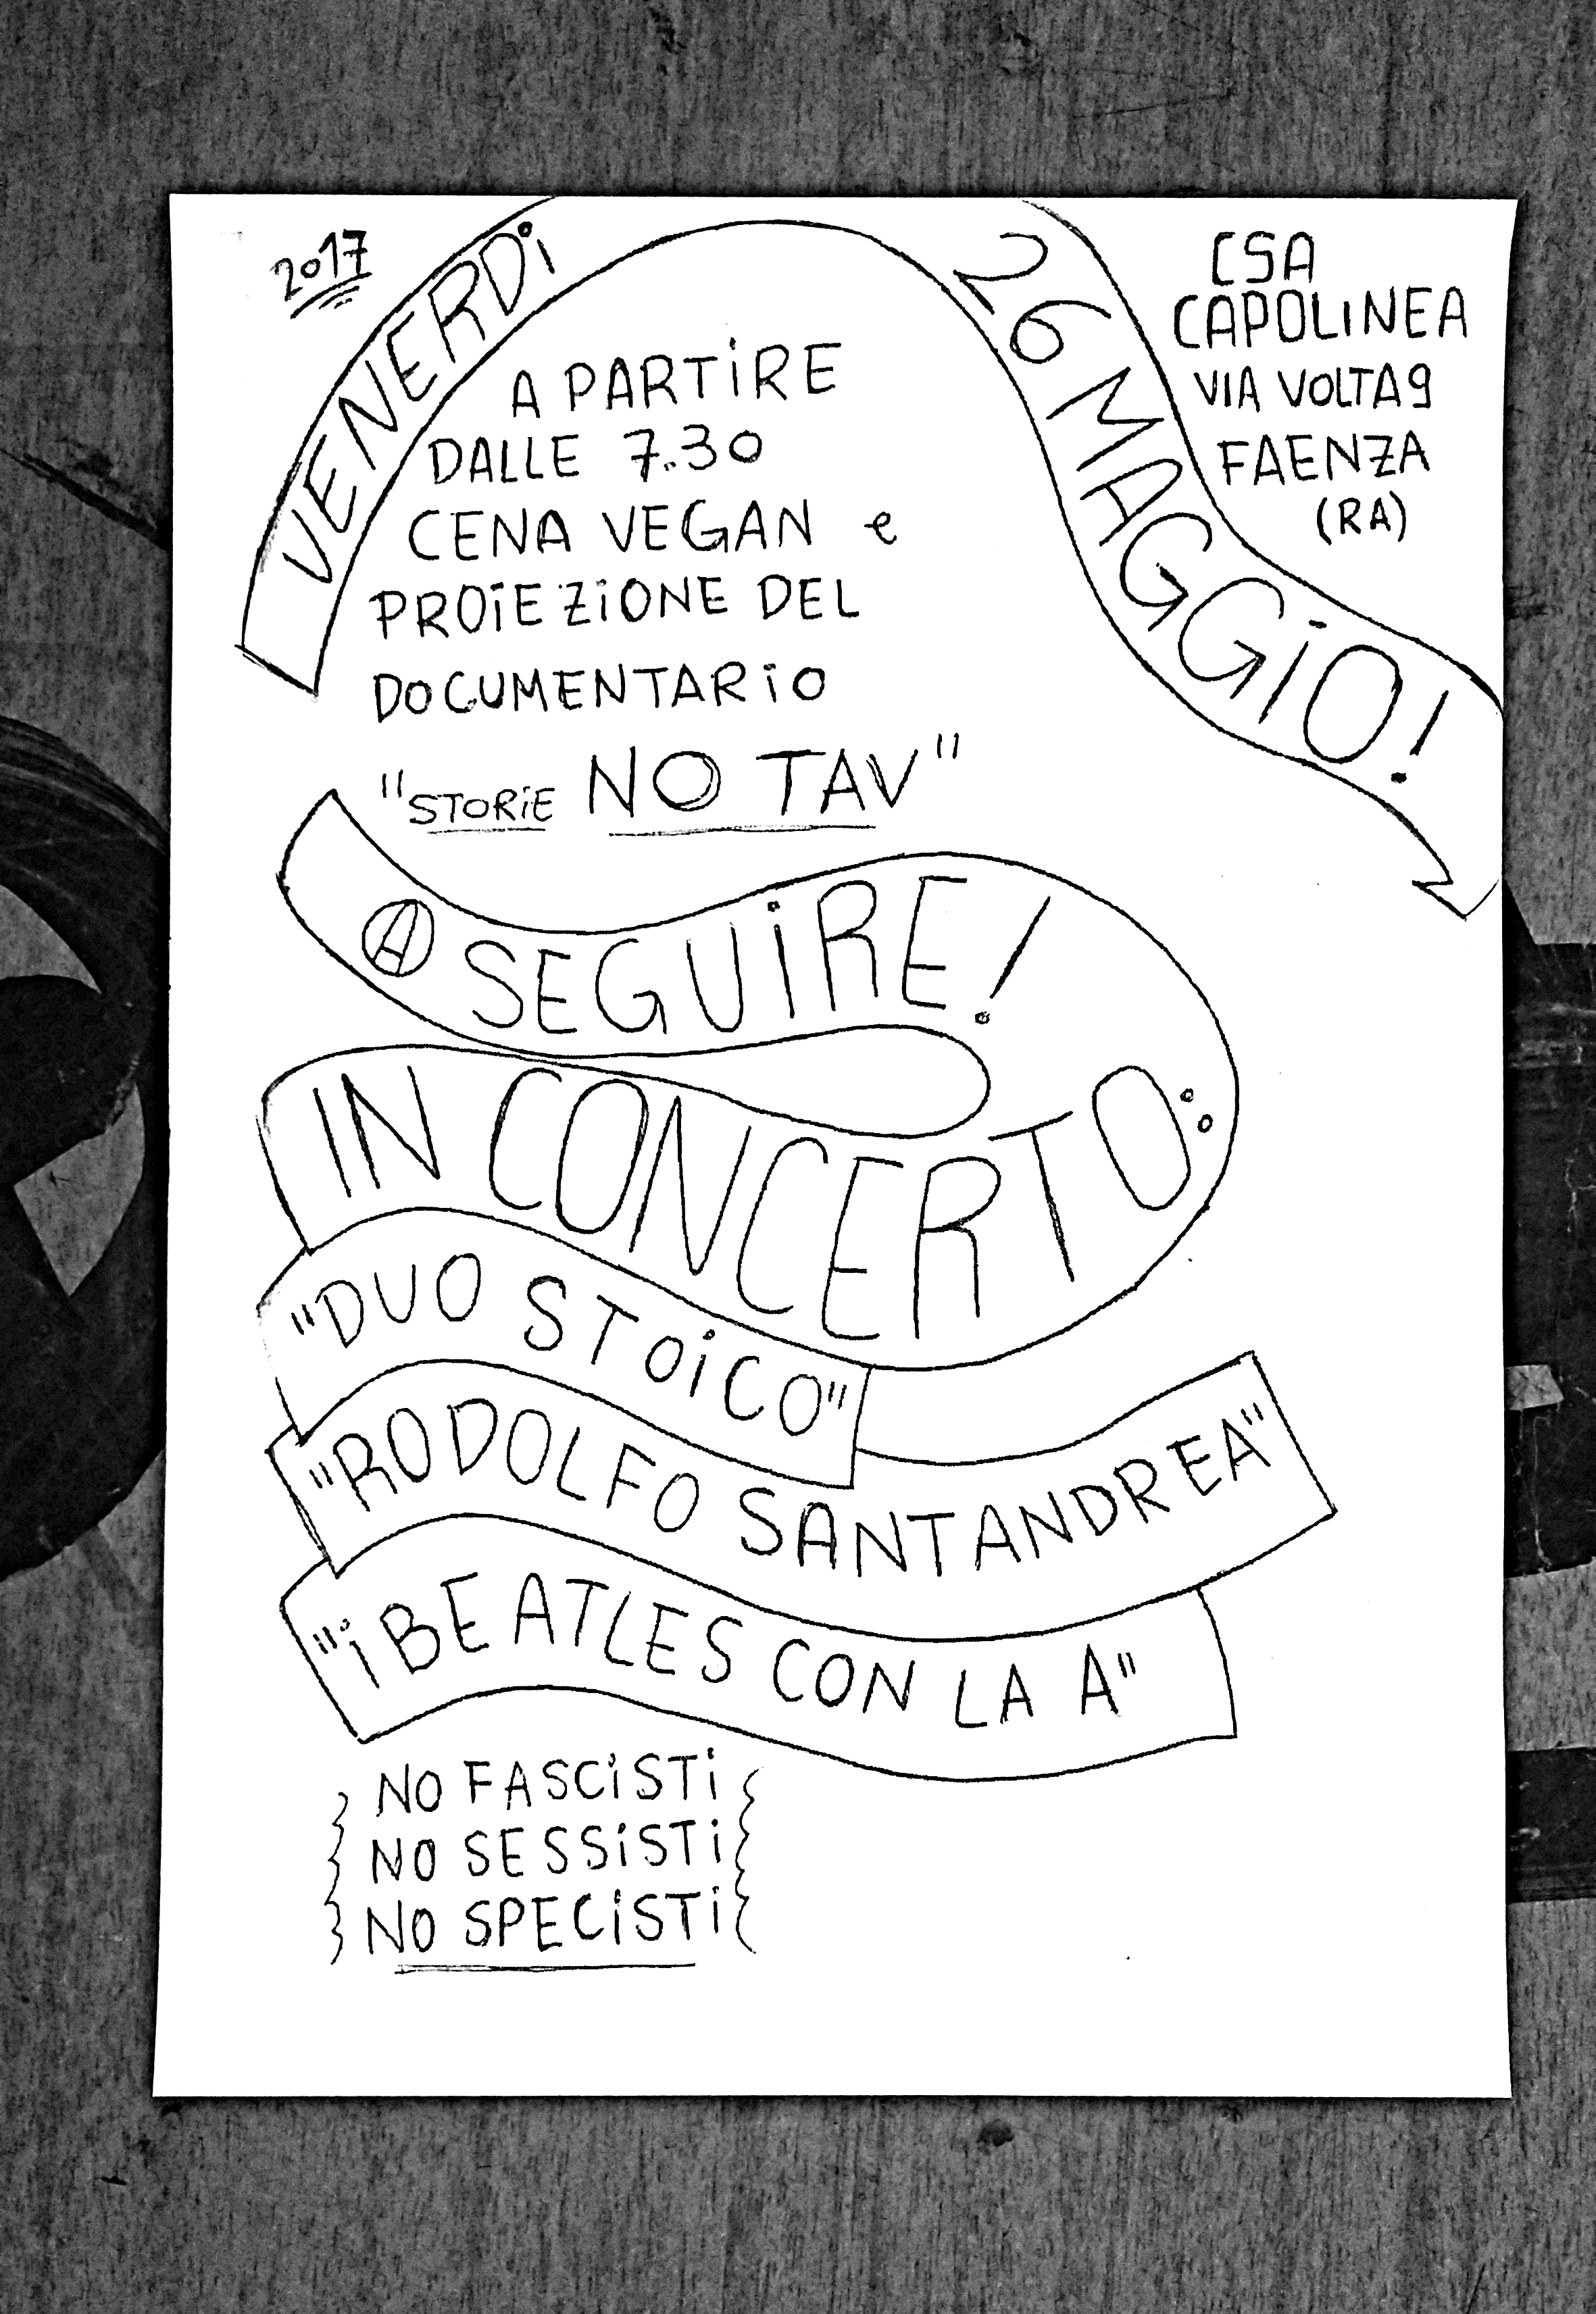 2017
VENERDi
26 MAGGiO!
CSA
CAPOLINEA
VIA VOLTA 9
FAENZA
(RA)
A PARTiRE
DALLE 7.30
CENA VEGAN e
PROiEZiONE DEL
DOCUMENTARiO
"STORiE NO TAV"
Ⓐ SEGUiRE!
IN CONCERTO:
"DUO STOiCO"
"RODOLFO SANTANDREA"
"i BEATLES CON LA A"
NO FASCiSTi
NO SESSiSTi
NO SPECiSTi